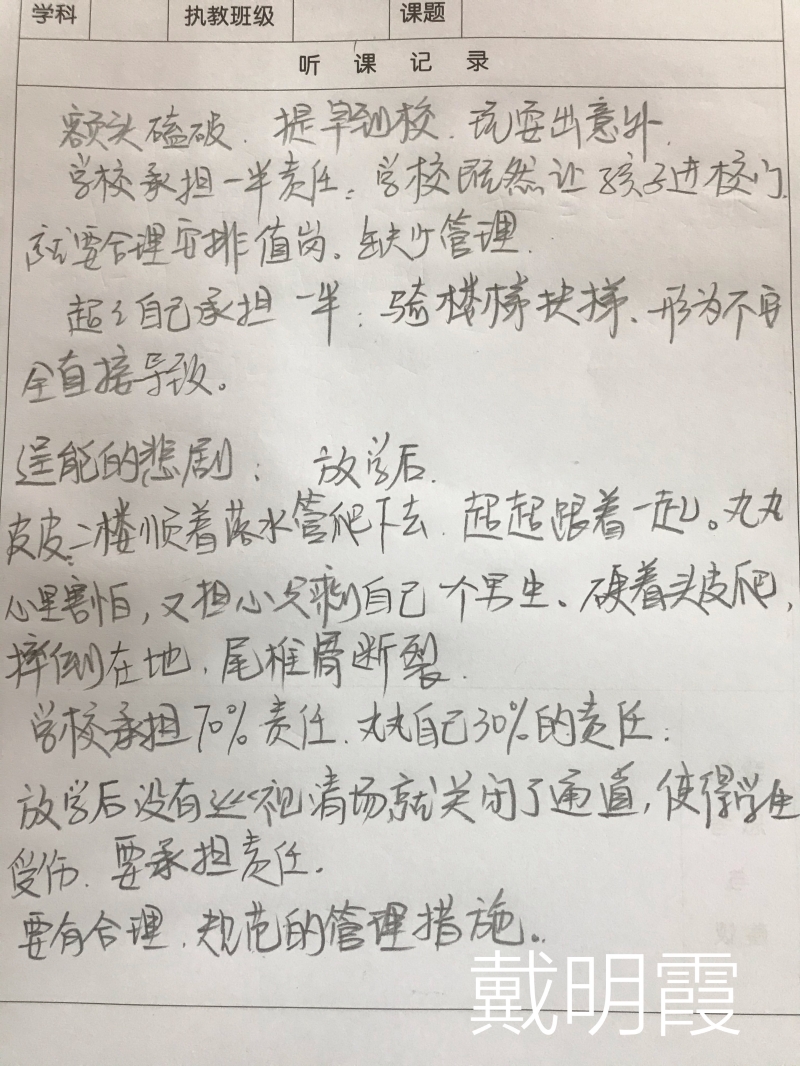 学科 执教班级 课题
听课记录
额头磕破. 提早到校. 玩耍出意外.
学校承担一半责任。学校既然让孩子进校门.
就要合理安排值岗。缺少管理.
超〻自己承担一半: 骑楼梯扶梯、形为不安
全直接导致。
逞能的悲剧: 放学后.
皮皮二楼顺着落水管爬下去. 超超跟着一起。丸丸
心里害怕,又担心只剩自己一个男生、硬着头皮爬,
摔倒在地. 尾椎骨断裂.
学校承担70%责任. 丸丸自己30%的责任:
放学后没有巡视清场就关闭了通道,使得学生
受伤. 要承担责任.
要有合理、规范的管理措施。
戴明霞